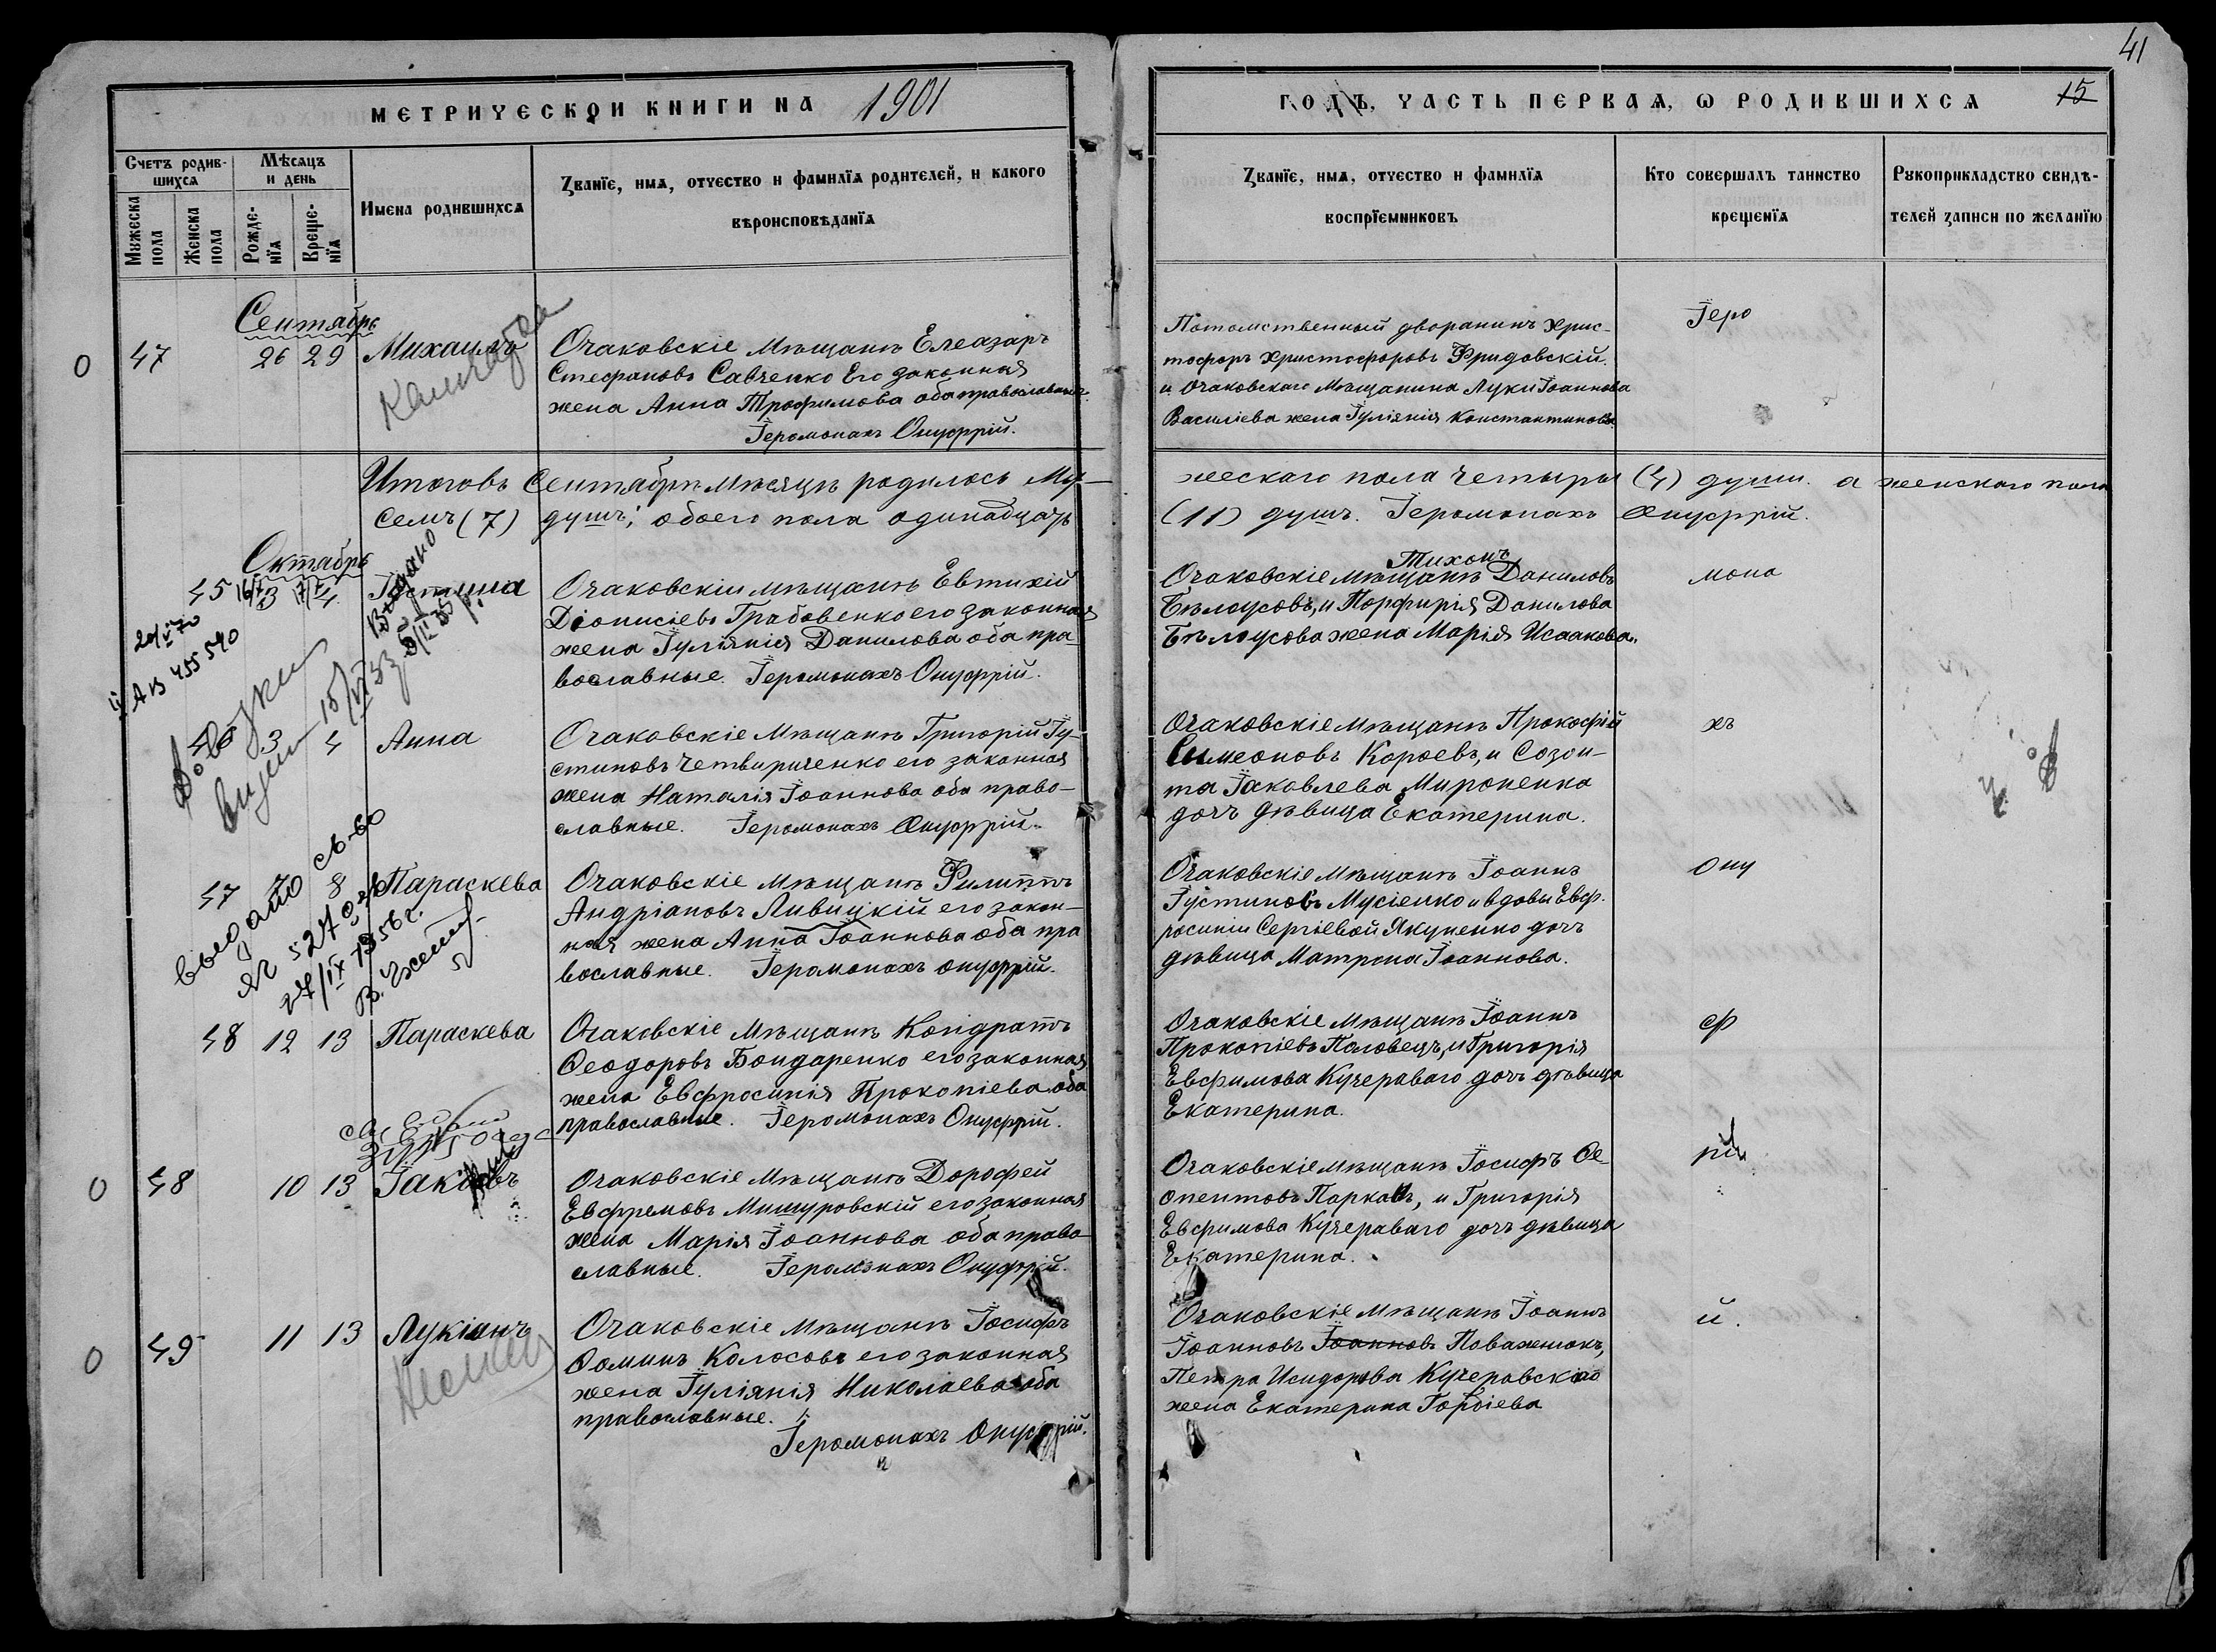 41
МЕТРИЧЕСКОИ КНИГИ НА 1901
ГОДЪ, ЧАСТЬ ПЕРВАѦ, Ѡ РОДИВШИХСѦ 15
Счетъ родив-
шихсѧ
Мѣсѧцъ
и день
Мужеска
пола
Женска
пола
Рожде-
нїѧ
Креще-
нїѧ
Имена родившихсѧ
Званїе, имѧ, отчество и фамилїѧ родителей, и какого
вѣроисповѣданїѧ
Званїе, имѧ, отчество и фамилїѧ
воспрїемниковъ
Кто совершалъ таинство
крещенїѧ
Рукоприкладство свидѣ-
телей записи по желанїю
Сентябрь
0 47 26 29 Михаилъ
Очаковскіе Мѣщанъ Елеазаръ
Стефановъ Савченко Его законная
жена Анна Трофимова оба православные.
Іеромонахъ Онуфрій.
Потомственный дворанинъ Хрис-
тофоръ Христофоровъ Фридовскій.
и Очаковскаго Мѣщанина Луки Іоаннова
Василіева жена Іуліянія Константинова.
Іеро
Итоговъ Сентябрѣ Мѣсяцѣ родилось Му-
жескаго пола четыры (4) души. а женскаго пола
Семъ (7) душъ; обоего пола одинадцать
(11) душъ. Іеромонахъ Онуфрій.
Октябрь
45 16/3 17/4 Іустина
Выдано
20/V 70
455540
Очаковскіи мѣщанъ Евтихій
Діонисіевъ Грабовенко его законная
жена Іуліянія Данилова оба пра-
вославные. Іеромонахъ Онуфрій.
Тихонъ
Очаковскіе Мѣщанъ Даниловъ
Бѣлоусовъ, и Порфирія Данилова
Бѣлоусова жена Марія Исаакова.
мона
46 3 4 Анна
15/VI 33
Очаковскіе Мѣщанъ Григорій Іу-
стиновъ Четвириченко его законная
жена Наталія Іоаннова оба право-
славные. Іеромонахъ Онуфрій.
Очаковскіе Мѣщанъ Прокофій
Симеоновъ Короевъ, и Созон-
та Іаковлева Мироненка
дочъ дѣвица Екатерина.
хъ
47 7 8 Параскева
выдано св-во
27/IX 1956 г.
Очаковскіе мѣщанъ Филиппъ
Андріановъ Ливицкій его закон-
ная жена Анна Іоаннова оба пра
вославные. Іеромонахъ Онуфрій.
Очаковскіе Мѣщанъ Іоаннъ
Іустиновъ Мусіенко и вдовы Евф.
росиніи Сергіевой Якуненко дочъ
дѣвица Матрона Іоаннова.
Ону
48 12 13 Параскева
Очаковскіе Мѣщанъ Кондратъ
Ѳеодоровъ Бондаренко его законная
жена Евфросинія Прокопіева оба
православные. Іеромонахъ Онуфрій.
Очаковскіе Мѣщанъ Іоаннъ
Прокопіевъ Половецъ, и Григорія
Евфимова Кучераваго дочъ дѣвица
Екатерина.
ф
0 48 10 13 Іаковъ
Очаковскіе Мѣщанъ Дорофей
Евфремовъ Мишуровскій его законная
жена Марія Іоаннова оба право-
славные. Іеромонахъ Онуфрій.
Очаковскіе мѣщанъ Іосифъ Ѳе-
опентовъ, и Григорія
Евфимова Кучераваго дочъ дѣвица
Екатерина.
рі
0 49 11 13 Лукіанъ
Очаковскіе Мѣщанъ Іосифъ
Ѳоминъ Колосовъ его законная
жена Іуліянія Николаева оба
православные.
Іеромонахъ Онуфрій.
Очаковскіе Мѣщанъ Іоаннъ
Іоанновъ Іоанновъ Поваженюкъ,
Петра Исидорова Кучеровскаго
жена Екатерина
й.